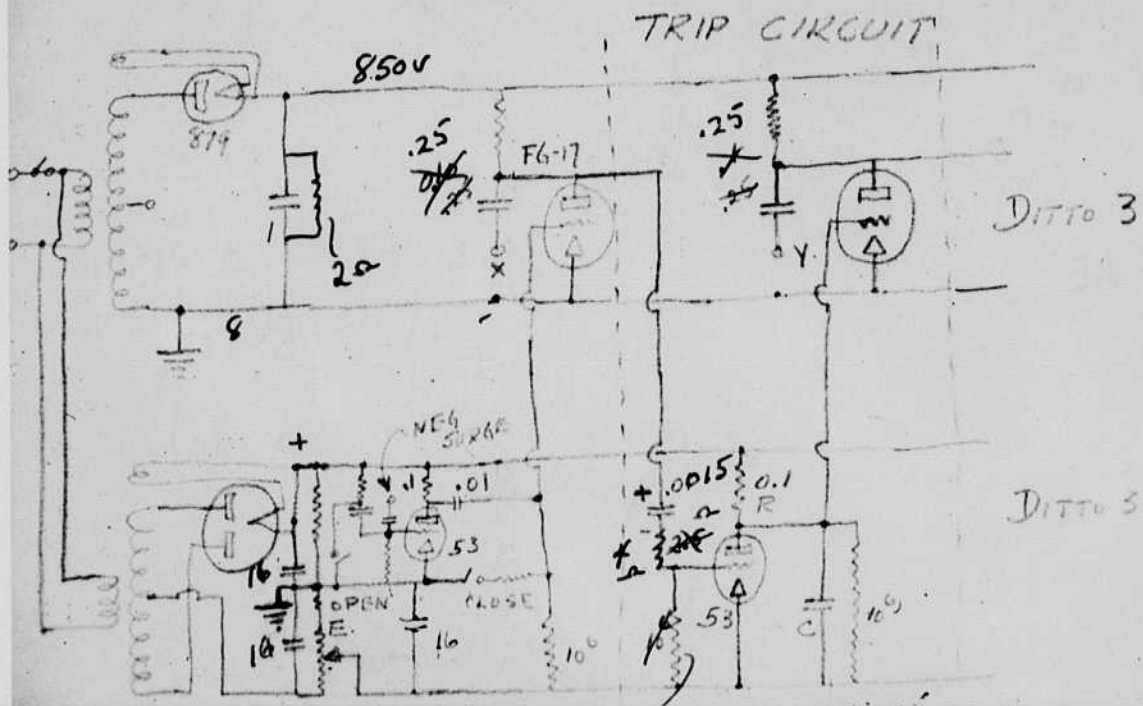 TRIP CIRCUIT
850V
879
.25
FG-17
.25
DITTO 3
1
2Ω
X
Y
8
NEG
SURGE
+
.1
.01
+ .0015
0.1
R
Ω
Ω
53
53
DITTO 3
16
OPEN
CLOSE
E.
16
16
10⁶
C
10⁶